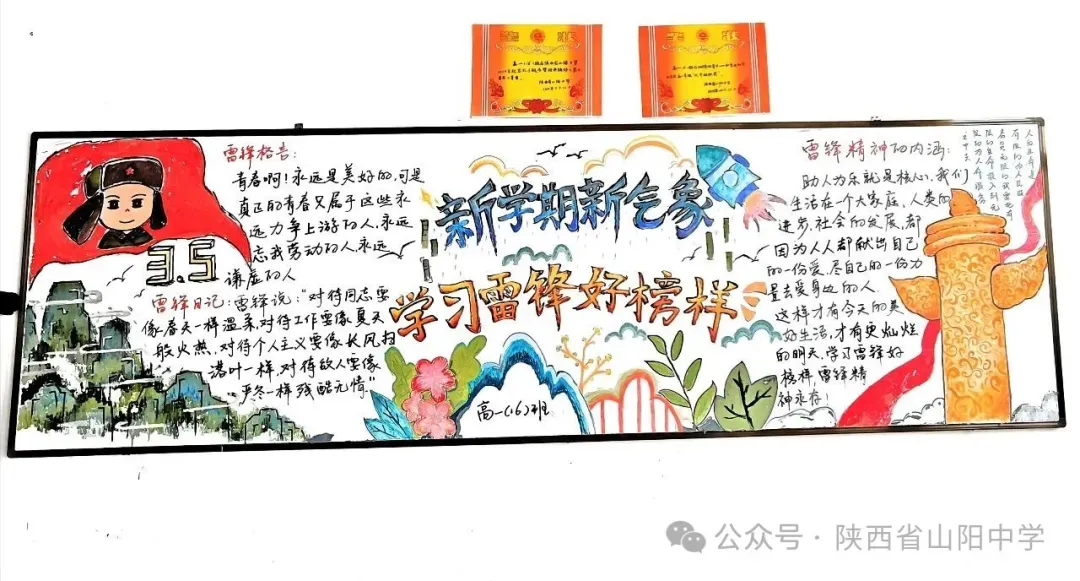 奖状
雷锋格言:
青春啊!永远是美好的,可是
真正的青春只属于这些永
远力争上游的人,永远
忘我劳动的人,永远
谦虚的人
3.5
雷锋日记:雷锋说:"对待同志要
像春天一样温柔,对待工作要像夏天
般火热,对待个人主义要像长风扫
落叶一样,对待敌人要像
严冬一样残酷无情。"
新学期新气象
学习雷锋好榜样
高一(16)班
雷锋精神的内涵:
助人为乐就是核心,我们
生活在一个大家庭,人类的
进步,社会的发展,都
因为人人都献出自己
的一份爱,尽自己的一份力
量去爱身边的人.
这样才有今天的美
好生活,才有更灿烂
的明天,学习雷锋好
榜样,雷锋精
神永存!
公众号·陕西省山阳中学